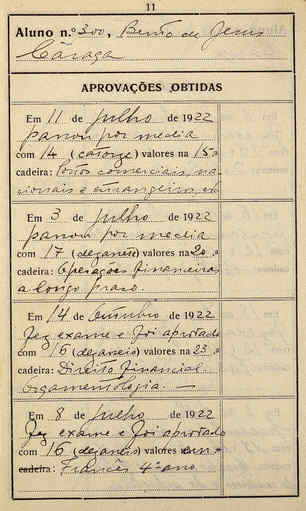 11
Aluno n.º 300, Bento de Jesus
Caraça
APROVAÇÕES OBTIDAS
Em 11 de Julho de 1922
passou por media
com 14 (catorze) valores na 15.ª
cadeira: comerciais, na-
cionais e estrangeiros, em
Em 3 de Julho de 1922
passou por media
com 17 valores na 20.ª
cadeira: Operações Financeiras
a longo prazo.
Em 14 de Outubro de 1922
Fez exame e foi aprovado
com 16 valores na 23.ª
cadeira: Direito Financial.
Em 8 de Julho de 1922
Fez exame e foi aprovado
com 16 valores
cadeira: Francês 4º ano.